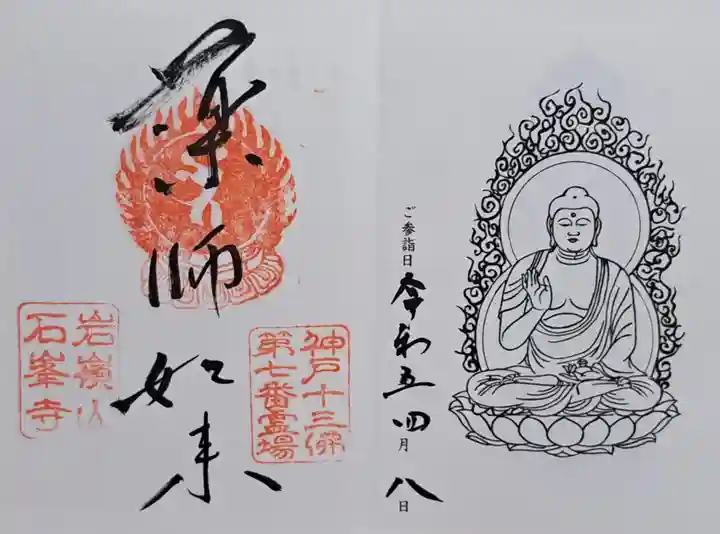 ご参詣日 令和五 四月 八日
薬師如来
神戸十三佛
第七番霊場
岩嶺山
石峯寺